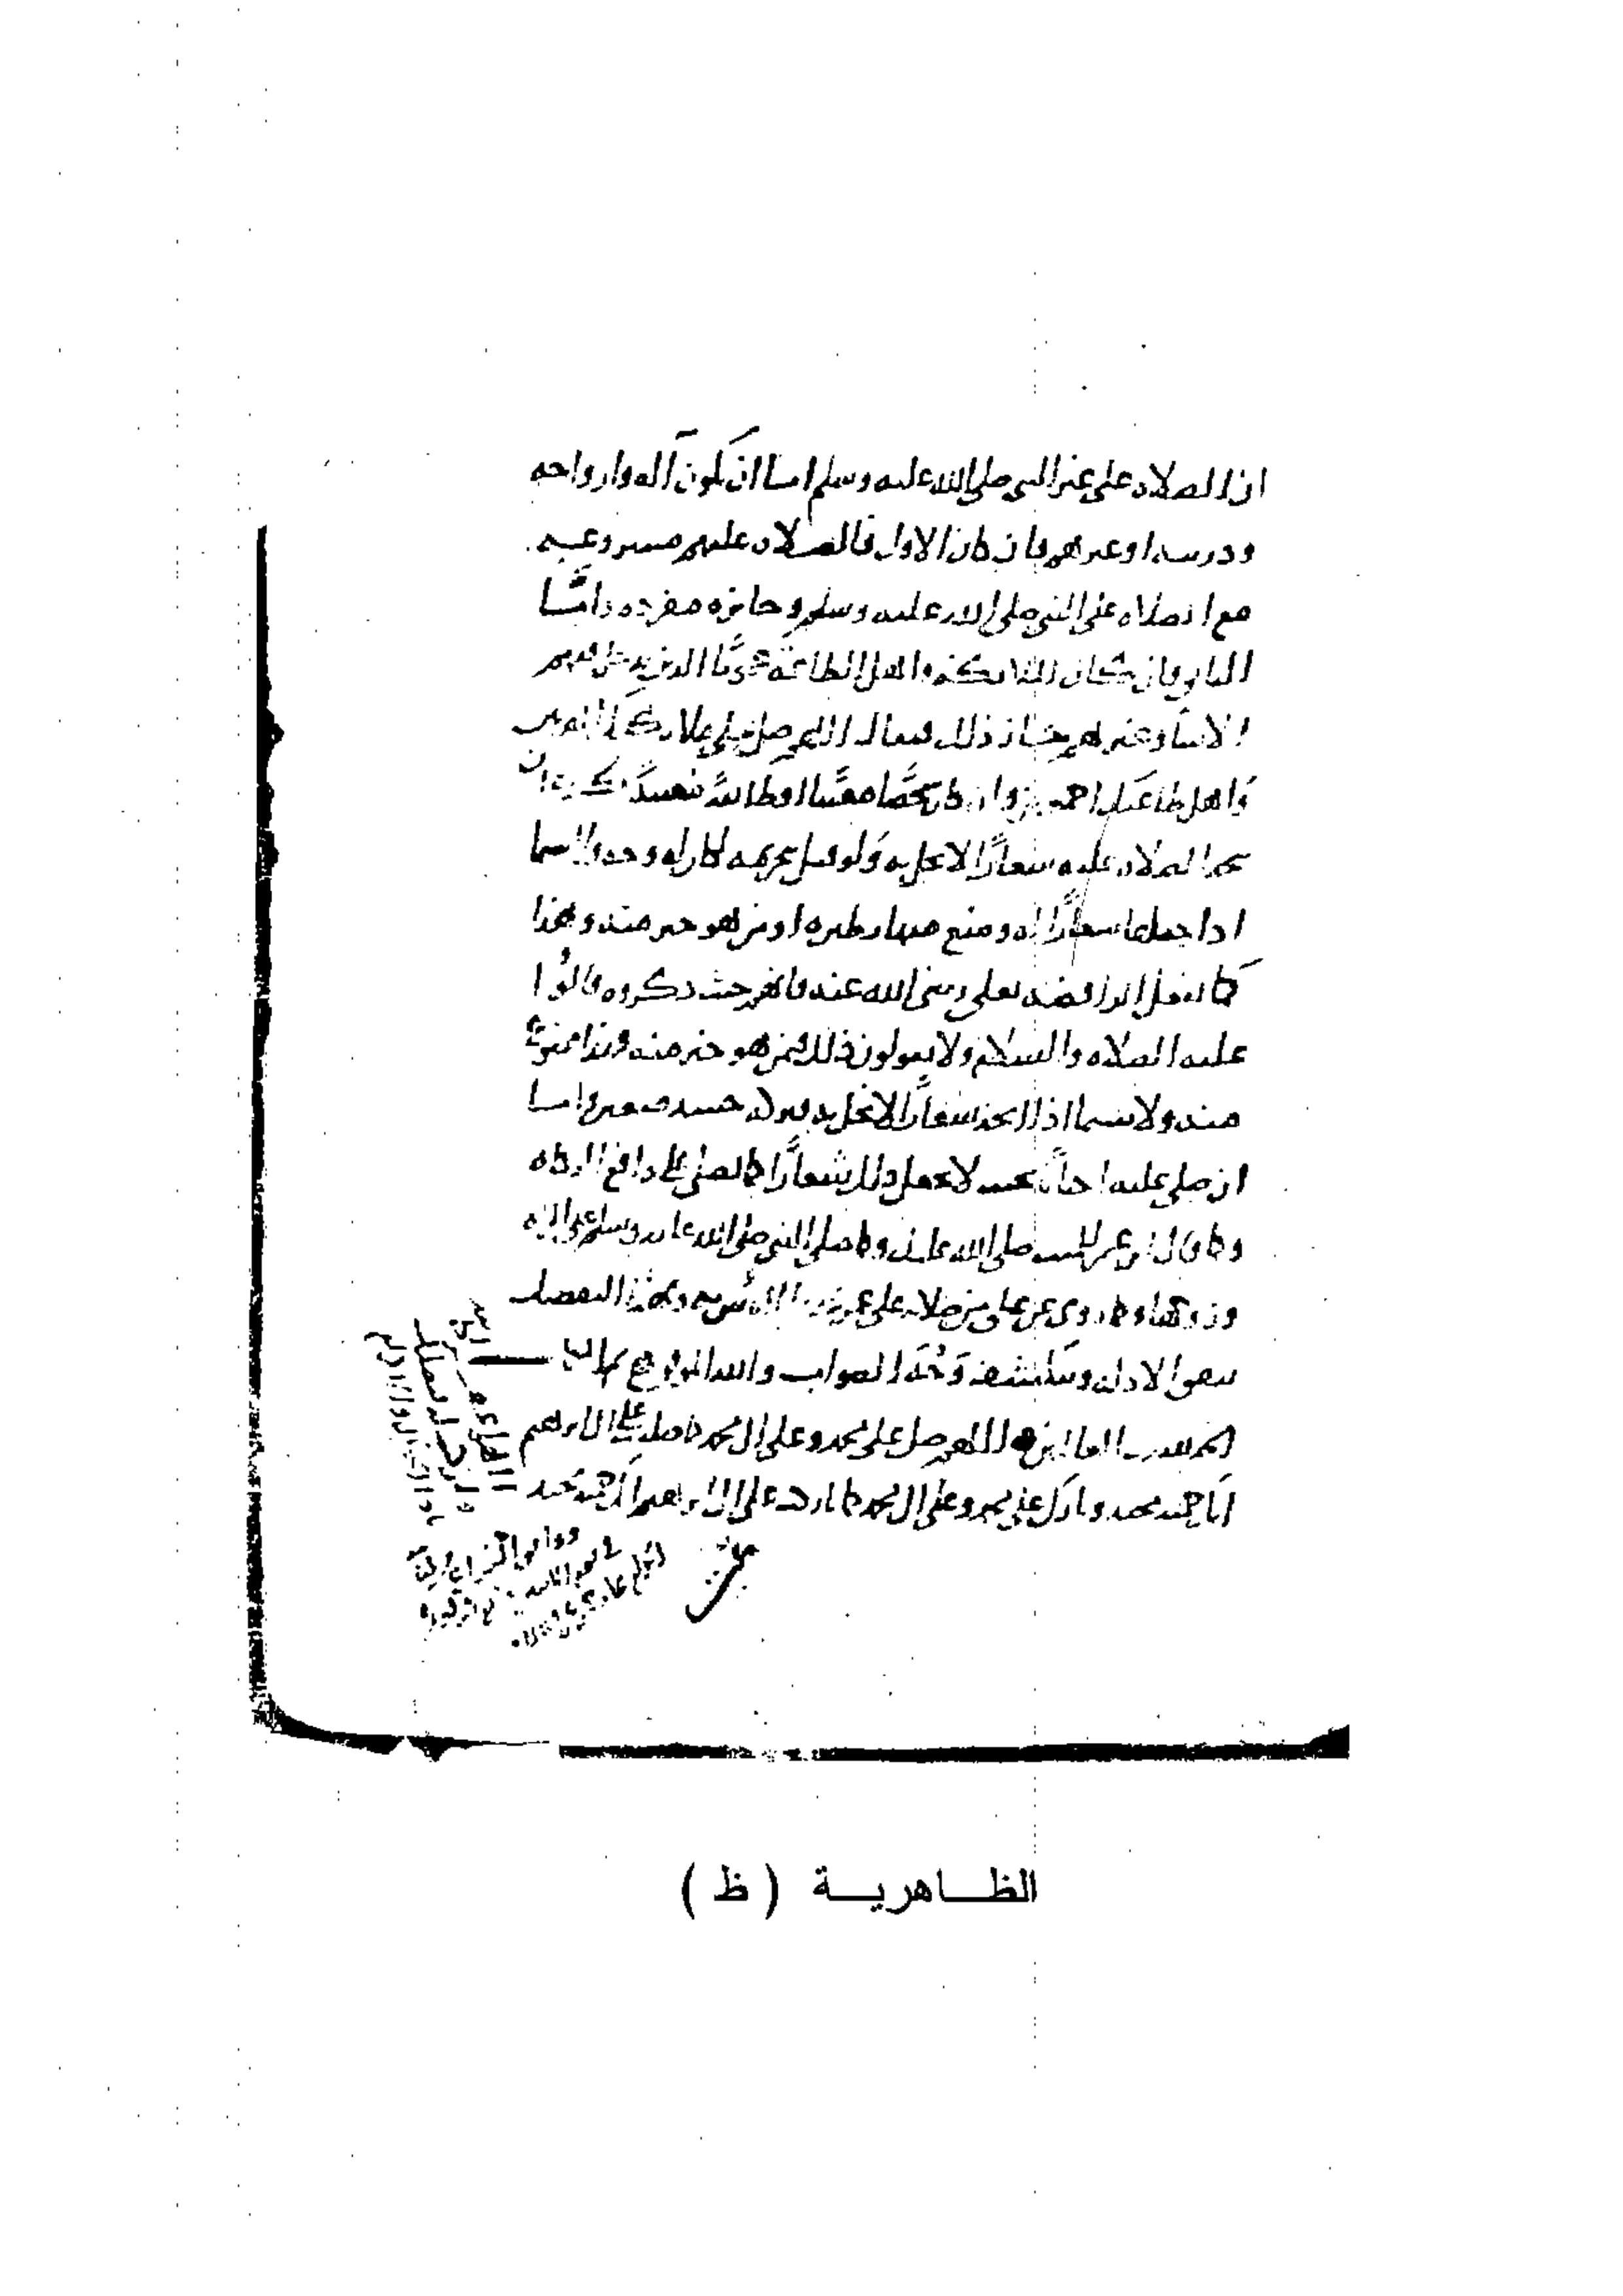 ان الصلاة على غير النبي صلى الله عليه وسلم اما ان يكون آله وازواجه
وذريته او غيرهم فان كان الاول فالصلاة عليهم مشروعة
مع الصلاة على النبي صلى الله عليه وسلم وجائزه مفرده واما
الثاني فان كان الملائكة واهل الطاعة عموما الذين يدخل فيهم
الانبياء وغيرهم جاز ذلك فيقال اللهم صل على ملائكتك المقربين
واهل طاعتك اجمعين وان كان شخصا معينا او طائفة معينة كره ان
الصلاة عليه شعارا لا يخل به ولو قيل بتحريمه لكان له وجه ولا سيما
اذا جعلها شعارا له ومنع منها نظيره او من هو خير منه وهذا
كما تفعل الرافضه بعلي رضي الله عنه فانهم حيث ذكروه قالوا
عليه الصلاة والسلام ولا يقولون ذلك فيمن هو خير منه فهذا ممنوع
منه ولا سيما اذا اتخذ شعارا لا يخل به فتركه حينئذ متعين واما
ان صلى عليه احيانا بحيث لا يجعل ذلك شعارا كما يصلى على دافع الزكاه
وكما قال ابن عمر للميت صلى الله عليه وكما صلى النبي صلى الله عليه وسلم على المراه
وزوجها وكما روى عن علي من صلاته على عمر فهذا لا باس به وبهذا التفصيل
تتفق الادلة وينكشف وجه الصواب والله الموفق
الحمد لله رب العالمين اللهم صل على محمد وعلى ال محمد كما صليت على ال ابراهيم
انك حميد مجيد وبارك على محمد وعلى ال محمد كما باركت على ال ابراهيم انك حميد مجيد
الظاهرية ( ظ )